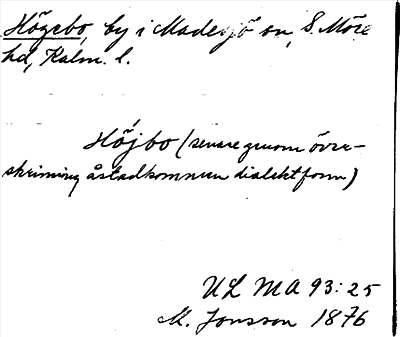 Högebo, by i Madesjö sn, S. Möre
hd, Kalm. l.
Höjbo (senare genom över-
skrivning åstadkommen dialektform)
UL MA 93:25
M. Jonsson 1876